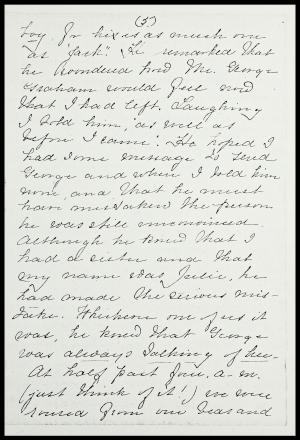 (5)
boy. for his is as much one
as Jack". He remarked that
he wondered how Mr. George
Graham would feel now
that I had left. Laughing
I told him, "as well as
before I came". He hoped I
had some message to send
George and when I told him
none, and that he must
have mistaken the person
he was still unconvinced.
Although he knew that I
had a sister and that
my name was Julie, he
had made the serious mis-
take. Whichever one of us it
was, he knew that George
was always talking of her.
At half past four, a-m.
(just think of it!) we were
roused from our beds and